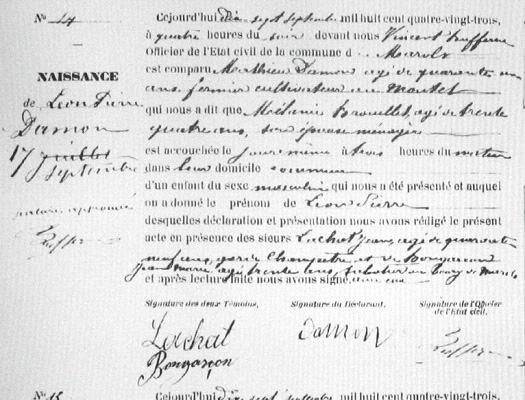 N° 14
NAISSANCE
de Léon Pierre
Damon
17 juillet
septembre
rature approuvée
Cejourd'hui dix sept septembre mil huit cent quatre-vingt-trois,
à quatre heures du soir devant nous Vincent
Officier de l'Etat civil de la commune d Marols
est comparu Mathieu Damon agé de quarante un
ans, fermier cultivateur au Moutet
qui nous a dit que Mélanie agée de trente
quatre ans, son épouse ménagère
est accouchée le jour même à trois heures du matin
dans leur domicile commun
d'un enfant du sexe masculin qui nous a été présenté et auquel
on a donné le prénom de Léon Pierre
desquelles déclaration et présentation nous avons rédigé le présent
acte en présence des sieurs Lachat Jean, agé de quarante
neuf ans, garde champêtre et de Bongarçon
Jean Marie agé trente ans, au bourg de Marols
et après lecture faite nous avons signé avec eux
Signature des deux Témoins, Signature du Déclarant, Signature de l'Officier
de l'Etat civil.
Lachat Damon
Bongarçon
N° 15 Cejourd'hui dix sept septembre mil huit cent quatre-vingt-trois,